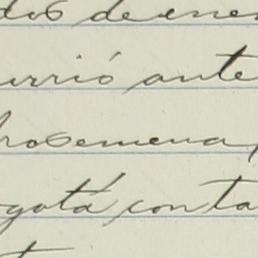 dos de ener
urrió ante
rosemena
gotá conta